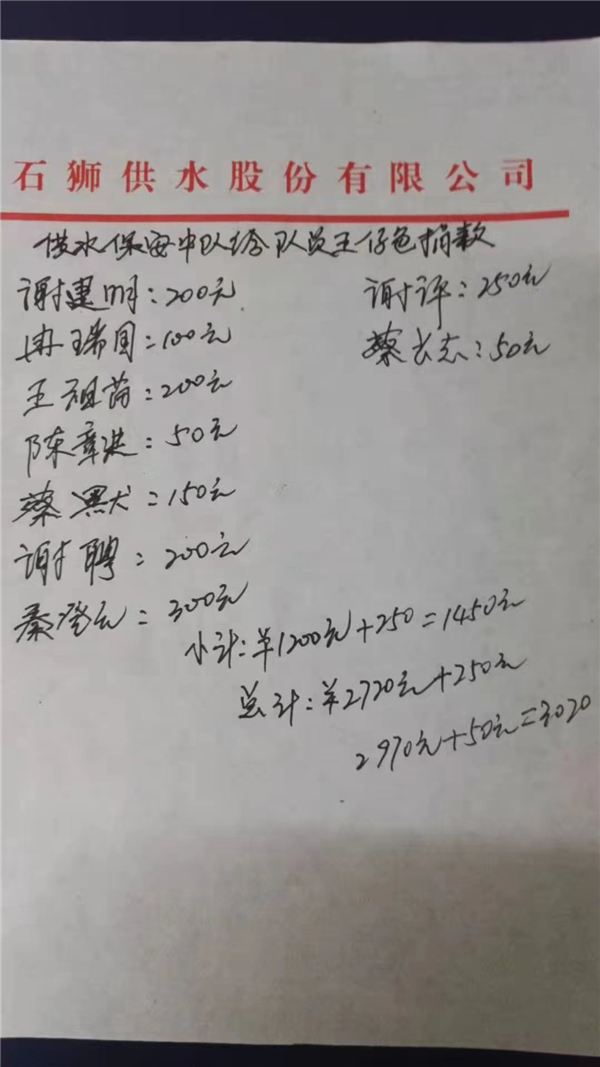 石狮供水股份有限公司
供水保安中队给队员王仔色捐款
谢建明：200元
冉瑞国：100元
王祖苗：200元
陈章洪：50元
蔡黑犬：150元
谢聘：200元
秦登云：300元
谢评：250元
蔡长志：50元
小计：¥1200元+250=1450元
总计：¥2720元+250元
2970元+50元=3020